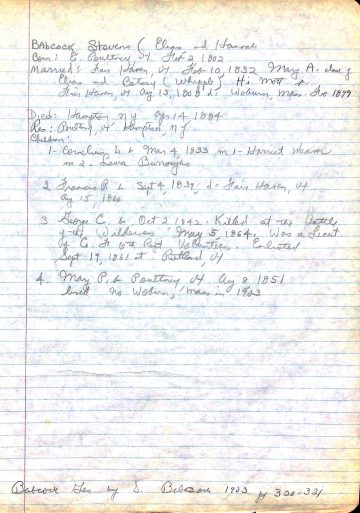 BABCOCK Stevens (Elias and Hannah
Born: E. Poultney, Vt Feb 2, 1802
Married: Fair Haven, Vt Feb 10, 1832 Mary A. dau of
Elias and Betsey (Whipple)
Fair Haven, Vt Ag 13, 1808 d. Woburn, Mass. Feb 1899
Died: Hampton, N Y Apr 14 1884
Res: Poultney, Vt Hampton N Y
Children
1- Cornelius b Mar 4 1833 m 1- Harriet Weaver
m 2- Laura Burroughs
2 Francis R b Sept 4, 1839, d- Fair Haven, Vt
Ag 15, 1860
3 George C. b. Oct 2 1842. Killed at the Battle
of the Wilderness May 5, 1864. Was a Lieut
of Co. F 6th Regt Vt Enlisted
Sept 19, 1861 at Rutland, Vt
4. Mary P. b Poultney Vt Ag 8 1851
lived No Woburn, Mass in 1903
Babcock Gen by S. Babcock 1903 pg 320-321